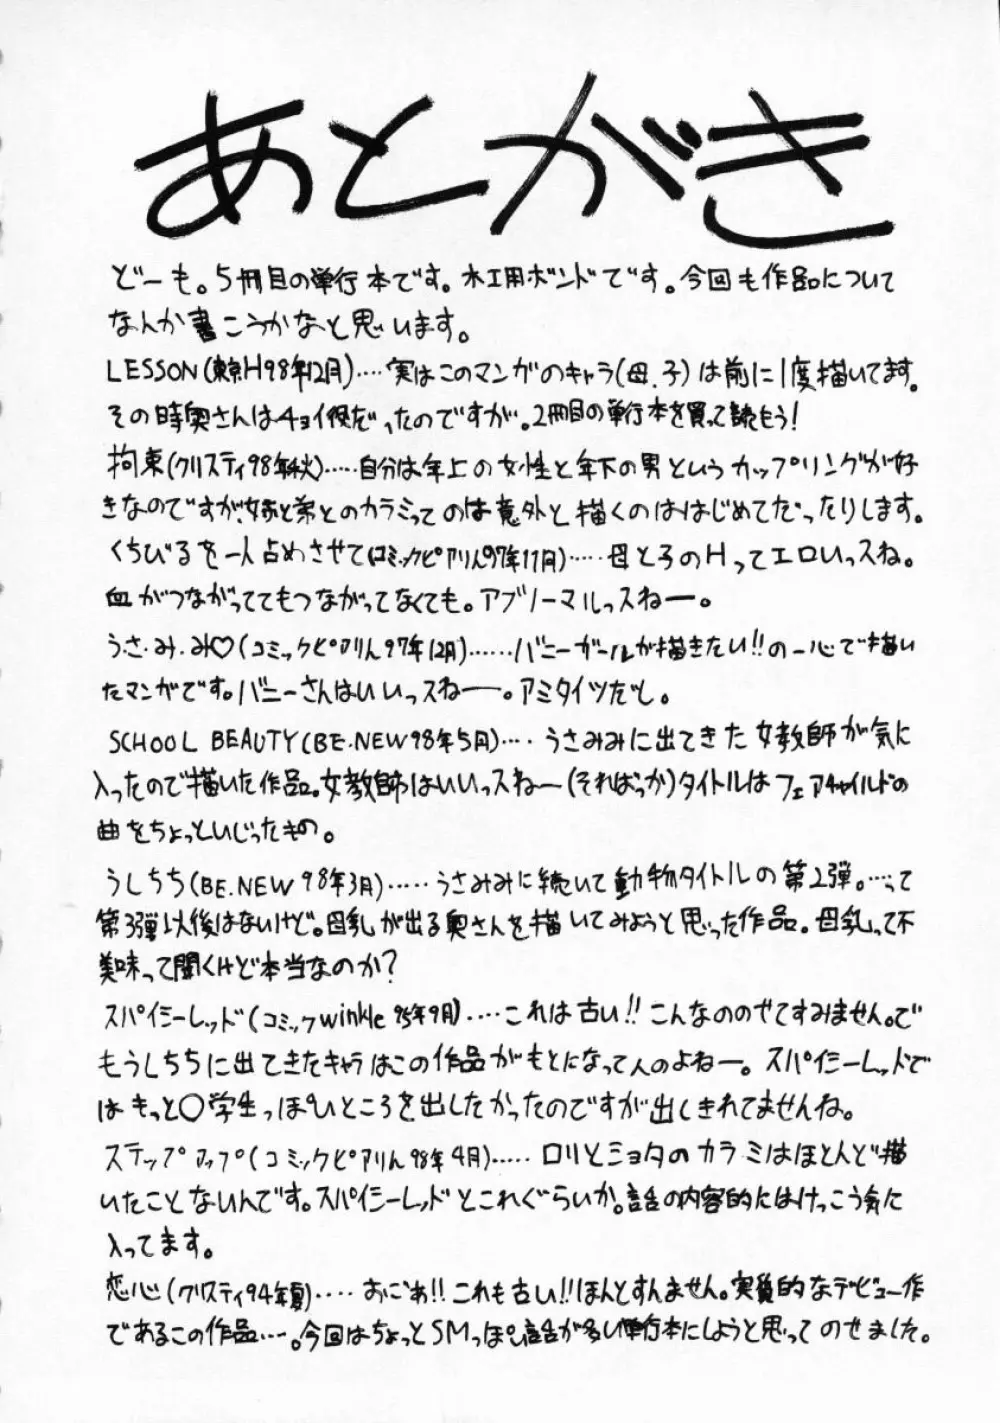 あとがき
どーも。5冊目の単行本です。木工用ボンドです。今回も作品について
なんか書こうかなと思います。
LESSON(東京H98年12月)‥‥実はこのマンガのキャラ(母、子)は前に1度描いてます。
その時奥さんはチョイ役だったのですが。2冊目の単行本を買って読もう!
拘束(クリスティ98年秋)‥‥‥自分は年上の女性と年下の男というカップリングが好
きなのですが、姉と弟とのカラミってのは意外と描くのははじめてだったりします。
くちびるを一人占めさせて(コミックピアリん97年11月)‥‥‥母と子のHってエロいっスね。
血がつながっててもつながってなくても。アブノーマルっスねー。
う・さ・み・み♡(コミックピアリん97年12月)‥‥‥バニーガールが描きたい!!の一心で描い
たマンガです。バニーさんはいいっスねー。アミタイツだし。
SCHOOL BEAUTY(BE.NEW98年5月)‥‥うさみみに出てきた女教師が気に
入ったので描いた作品。女教師はいいっスねー(そればっか)タイトルはフェアチャイルドの
曲をちょっといじったもの。
うしちち(BE.NEW98年3月)‥‥‥うさみみに続いて動物タイトルの第2弾。‥‥って
第3弾以後はないけど。母乳が出る奥さんを描いてみようと思った作品。母乳って不
美味って聞くけど本当なのか?
スパイシーレッド(コミックwinkle95年9月)‥‥これは古い!!こんなののせてすみません。で
もうしちちに出てきたキャラはこの作品がもとになってんのよねー。スパイシーレッドで
はもっと○学生っぽいところを出したかったのですが出しきれてませんね。
ステップアップ(コミックピアリん98年4月)‥‥‥ロリとショタのカラミはほとんど描
いたことないんです。スパイシーレッドとこれぐらいか。話の内容的にはけっこう気に
入ってます。
恋心(クリスティ94年夏)‥‥‥おごぉ!!これも古い!!ほんとすんません。実質的なデビュー作
であるこの作品‥‥。今回はちょっとSMっぽい話が多い単行本にしようと思ってのせました。